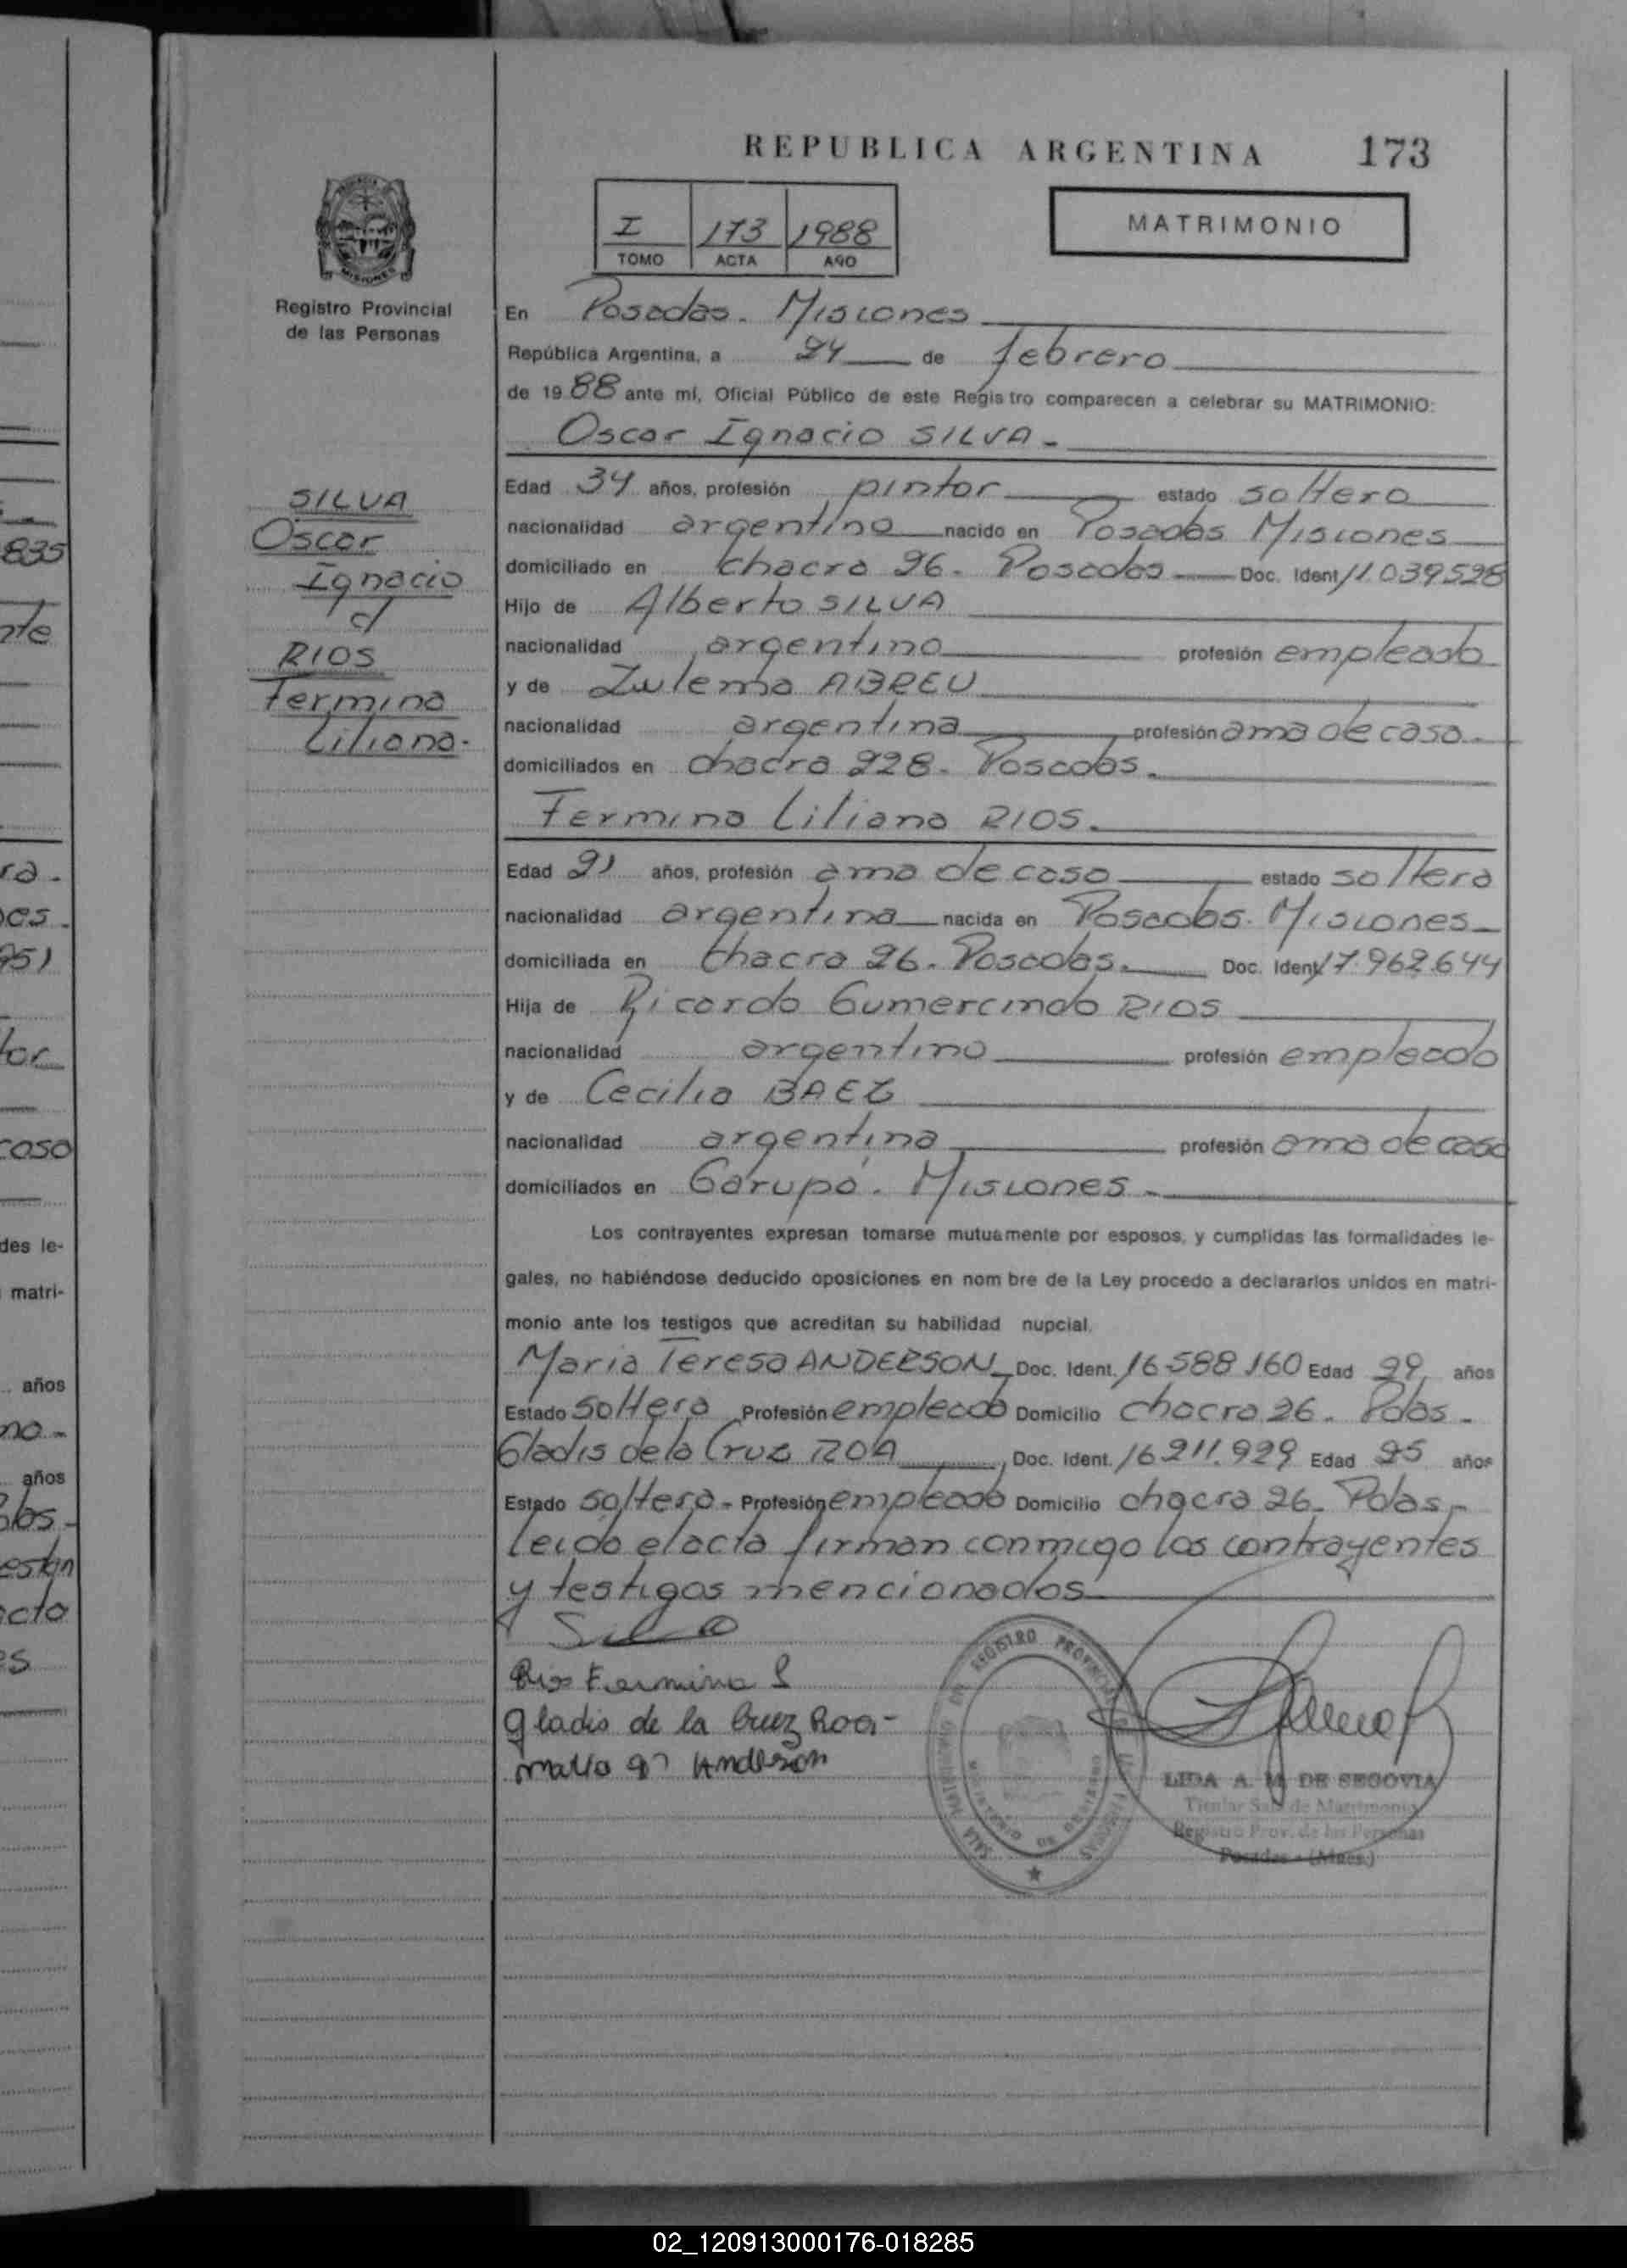 REPUBLICA ARGENTINA 173
MATRIMONIO
I 173 1988
TOMO ACTA AÑO
MISIONES
Registro Provincial
de las Personas
SILVA
Oscar
Ignacio
c/
RIOS
Fermina
Liliana.-
En Posadas. Misiones
República Argentina, a 24 de febrero
de 1988 ante mí, Oficial Público de este Registro comparecen a celebrar su MATRIMONIO:
Oscar Ignacio SILVA.-
Edad 34 años, profesión pintor estado soltero
nacionalidad argentino nacido en Posadas Misiones
domiciliado en chacra 26. Posadas Doc. Ident 11.039.528
Hijo de Alberto SILVA
nacionalidad argentino profesión empleado
y de Zulema ABREU
nacionalidad argentina profesión ama de casa.-
domiciliados en chacra 228. Posadas.
Fermina Liliana RIOS.
Edad 21 años, profesión ama de casa estado soltera
nacionalidad argentina nacida en Posadas. Misiones
domiciliada en chacra 26. Posadas. Doc. Ident 17.962.644
Hija de Ricardo Gumercindo RIOS
nacionalidad argentino profesión empleado
y de Cecilia BAEZ
nacionalidad argentina profesión ama de casa
domiciliados en Garupá. Misiones.
Los contrayentes expresan tomarse mutuamente por esposos, y cumplidas las formalidades le-
gales, no habiéndose deducido oposiciones en nom bre de la Ley procedo a declararlos unidos en matri-
monio ante los testigos que acreditan su habilidad nupcial.
Maria Teresa ANDERSON Doc. Ident. 16.588.160 Edad 22 años
Estado soltera Profesión empleada Domicilio chacra 26. Pdas.
Gladis de la Cruz ROA Doc. Ident. 16.211.929 Edad 25 años
Estado soltera - Profesión empleada Domicilio chacra 26. Pdas.
Leido el acta firman conmigo los contrayentes
y testigos mencionados
Silva
Rios Fermina L
Gladis de la Cruz Roa-
Anderson
REGISTRO PROVINCIAL DE
LIDA A. M. DE SEGOVIA
Titular Sala de Matrimonio
Registro Prov. de las Personas
Posadas - (Mnes.)
835
nte
ra.
951
tor
casa
des le-
matri-
años
años
acto
02_120913000176-018285